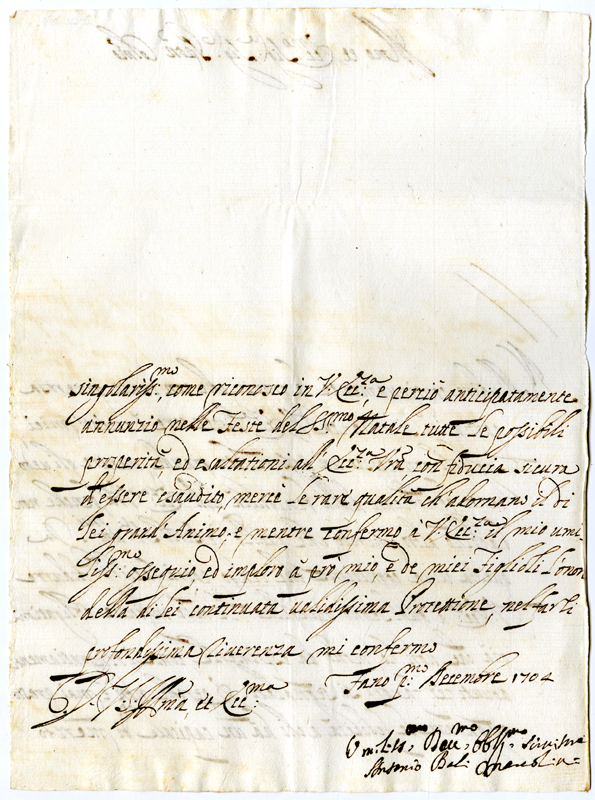 singolariss:mo, come riconosco in V: Ecc:za, e perciò anticipatamente
annunzio nelle Feste del SS:mo Natale tutte le possibili
prosperità, ed esaltationi all' Ecc:za Vra, con fiducia sicura
d'essere esaudito, mercè le rare qualità ch'adornano il di
lei grand'Animo, e mentre confermo à V: Ecc:za il mio umi
liss:mo ossequio, ed imploro à prò mio, e de miei Figlioli l'onor
della di lei continuata validissima Protettione, nel farli
profondissima riverenza mi confermo
Di V: Illma, et Ecc:ma
Fano p:mo Decembre 1704
Umiliss:mo Dev:mo Obblig:mo Servitore
Antonio